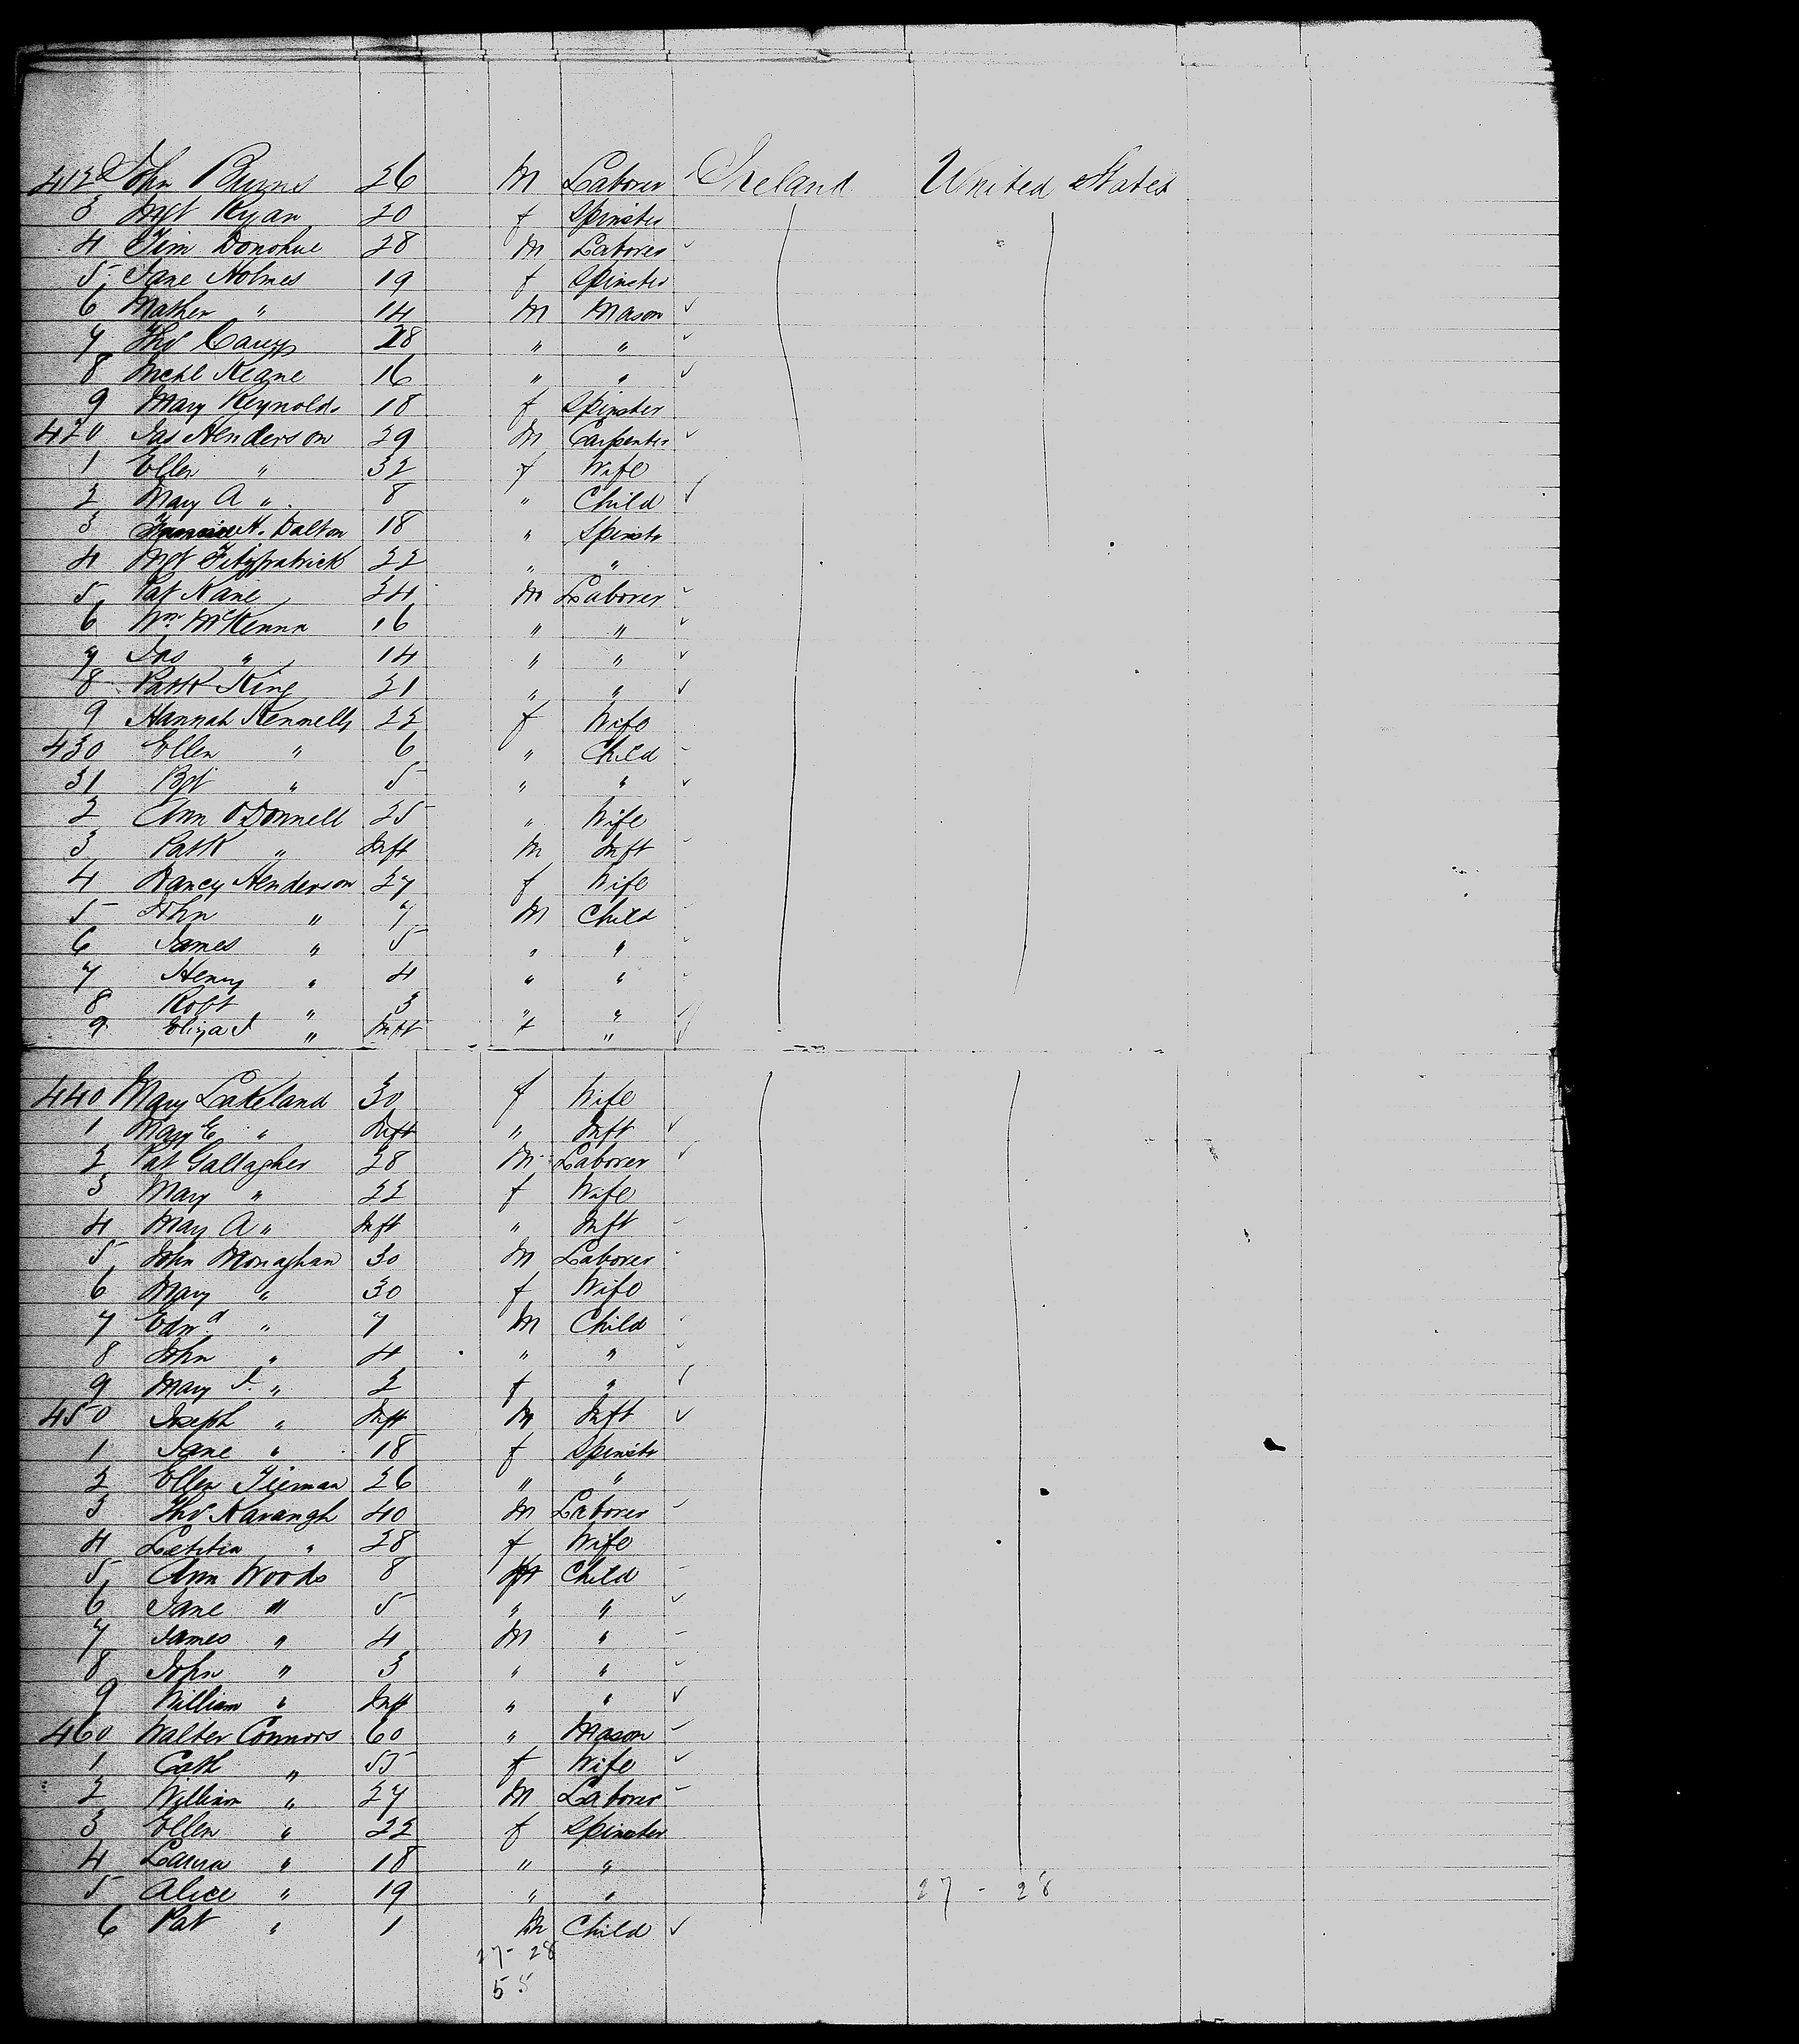 412 John Burns 26 M Laborer Ireland United States
3 Mgt Ryan 20 f Spinster
4 Tim Donohue 28 M Laborer
5 Jane Holmes 19 f Spinster
6 Mathew " 14 M Mason
7 Thos Carey 28 " "
8 Michl Keane 16 " "
9 Mary Reynolds 18 f Spinster
420 Jas Henderson 29 M Carpenter
1 Ellen " 32 f Wife
2 Mary A " 8 " Child
3 H. Dalton 18 " Spinstr
4 Mgt Fitzpatrick 22 " "
5 Pat Kane 24 M Laborer
6 Wm McKenna 16 " "
7 Jas " 14 " "
8 Patk King 21 " "
9 Hannah Kennelly 22 f Wife
430 Ellen " 6 " Child
31 Bgt " 5 " "
2 Ann O'Donnell 25 " Wife
3 Patk " Inft M Inft
4 Nancy Henderson 27 f Wife
5 John " 7 M Child
6 James " 5 " "
7 Henry " 4 " "
8 Robt " 3 " "
9 Eliza J " Inft f "
440 Mary Lakeland 30 f Wife
1 Mary E " Inft " Inft
2 Pat Gallagher 28 M Laborer
3 Mary " 22 f Wife
4 Mary A " Inft " Inft
5 John Monaghan 30 M Laborer
6 Mary " 30 f Wife
7 Edwd " 7 M Child
8 John " 4 " "
9 Mary J. " 2 f "
450 Joseph " Inft M Inft
1 Jane " 18 f Spinstr
2 Ellen Tiernan 26 " "
3 Thos Kavangh 40 M Laborer
4 Letitia " 28 f Wife
5 Ann Woods 8 f Child
6 Jane " 5 " "
7 James " 4 M "
8 John " 3 " "
9 William " Inft " "
460 Walter Connors 60 " Mason
1 Cath " 55 f Wife
2 William " 27 M Laborer
3 Ellen " 22 f Spinster
4 Laura " 18 " "
5 Alice " 19 " " 27 - 28
6 Pat " 1 M Child
27 - 28
55